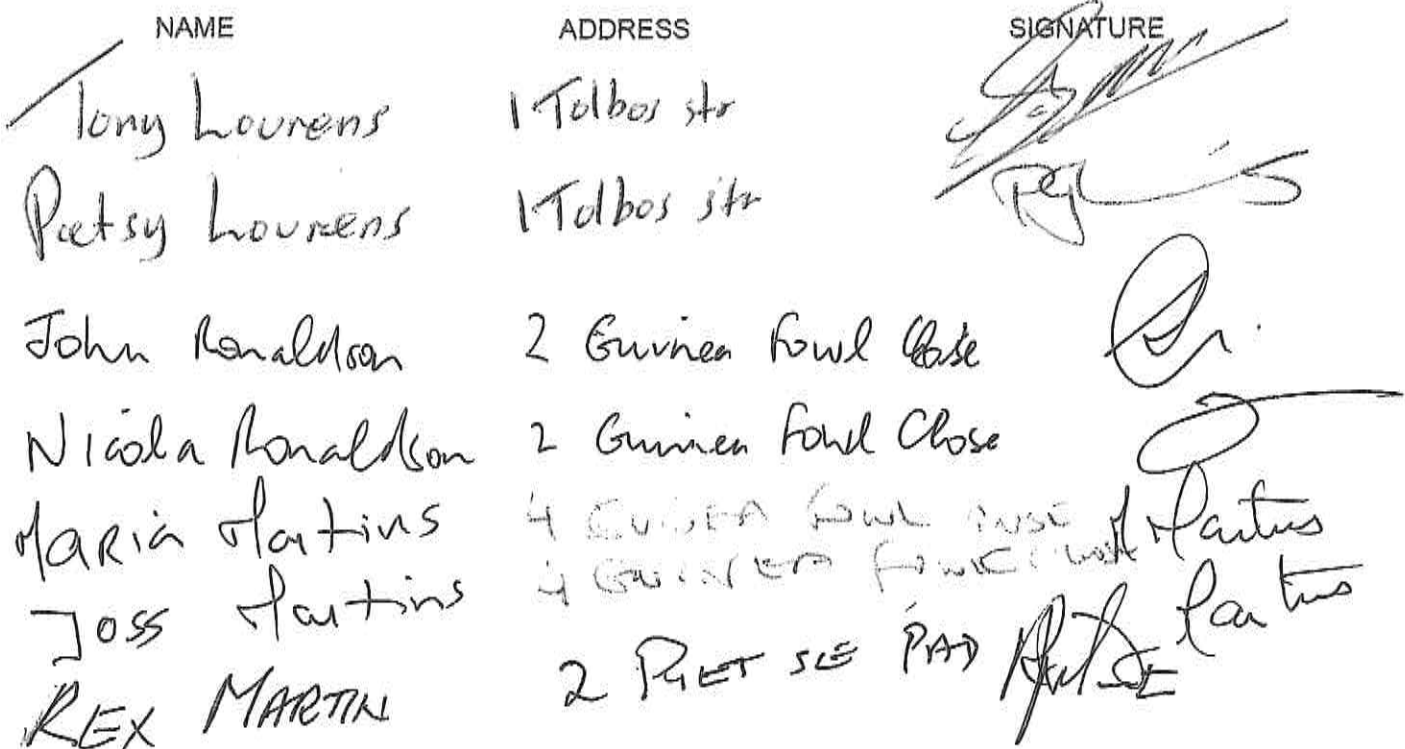 NAME ADDRESS SIGNATURE
Tony Lourens 1 Tolbos str
Patsy Lourens 1 Tolbos str
John Ronaldson 2 Guinea Fowl Close
Nicola Ronaldson 2 Guinea Fowl Close
MARIA Martins 4 GUINEA FOWL M Martins
Joss Martins 4 GUINEA FOWL Martins
REX MARTIN 2 PIET SE PAD